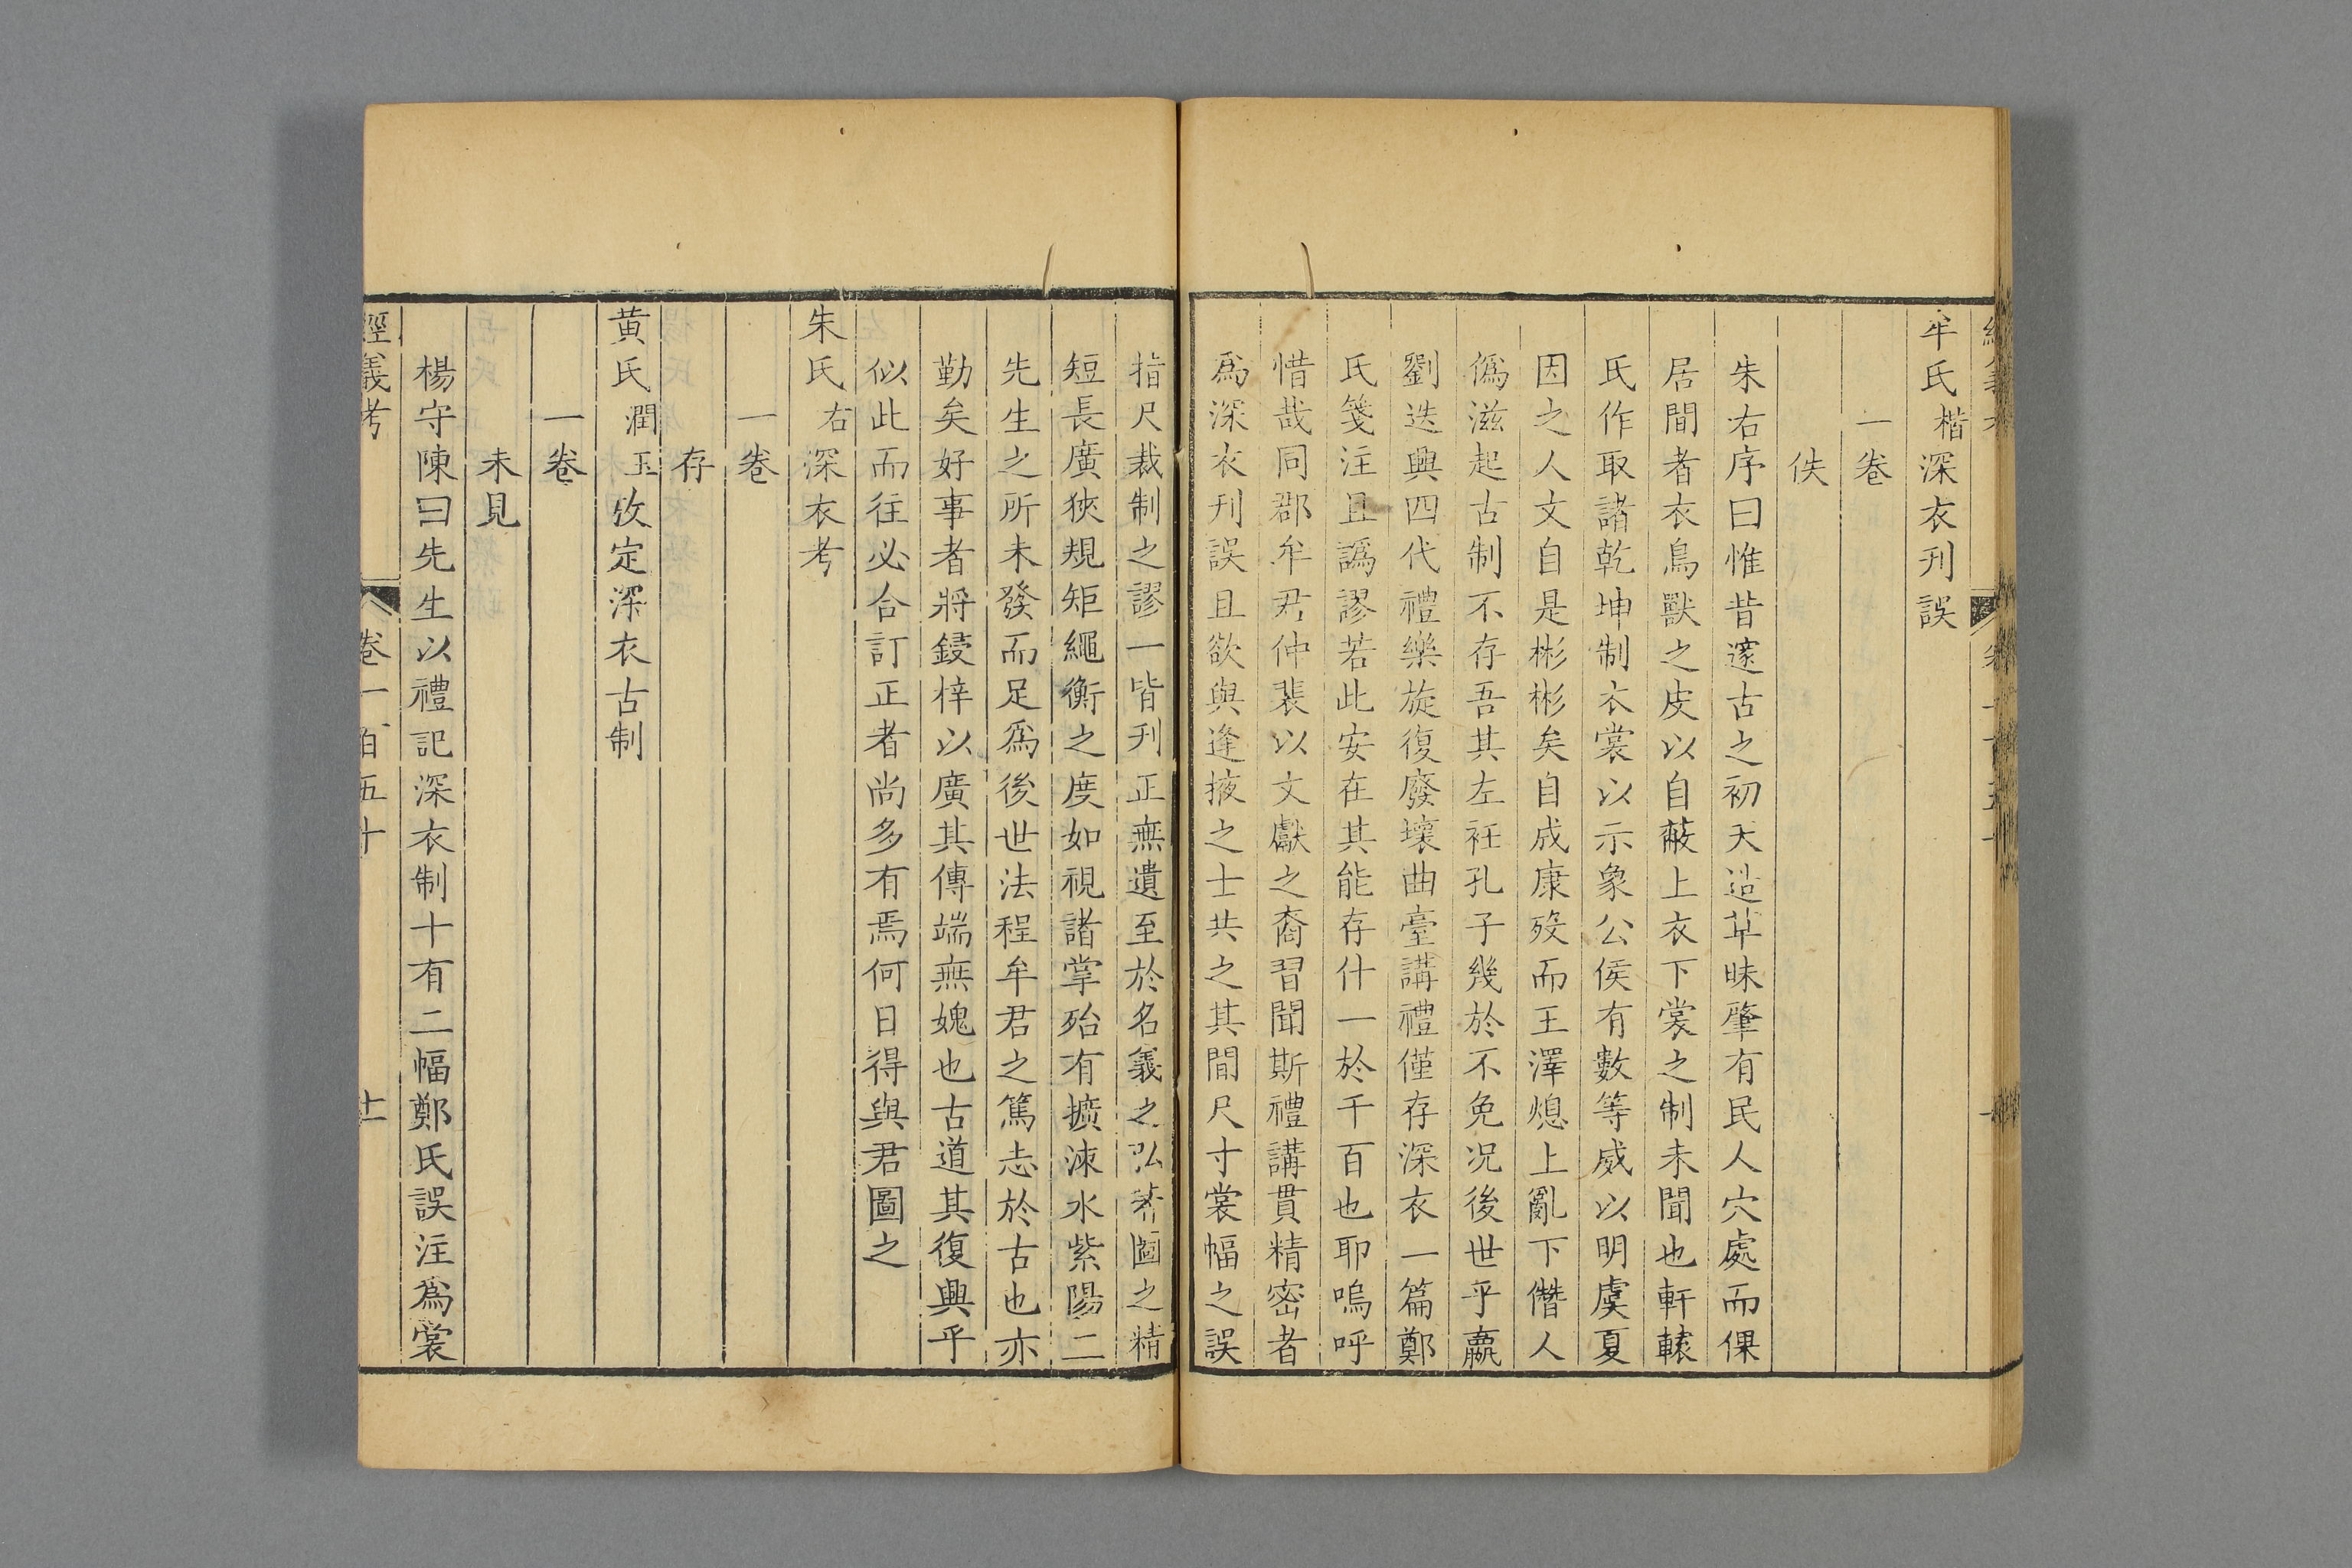 牟氏楷深衣刋誤
一卷
佚
朱右序曰惟昔邃古之初天造草昧肇有民人穴處而倮
居間者衣鳥獸之皮以自蔽上衣下裳之制未聞也軒轅
氏作取諸乾坤制衣裳以示象公侯有數等威以明虞夏
因之人文自是彬彬矣自成康歿而王澤熄上亂下僭人
僞滋起古制不存吾其左衽孔子幾於不免况後世乎嬴
劉迭興四代禮樂旋復廢壞曲臺講禮僅存深衣一篇鄭
氏箋注且譌謬若此安在其能存什一於千百也耶嗚呼
惜哉同郡牟君仲裴以文獻之裔習聞斯禮講貫精密者
爲深衣刋誤且欲與逢掖之士共之其間尺寸裳幅之誤
指尺裁制之謬一皆刋正無遺至於名義之弘著圖之精
短長廣狹規矩繩衡之度如視諸掌殆有擴涑水紫陽二
先生之所未發而足爲後世法程牟君之篤志於古也亦
勤矣好事者將鋟梓以廣其傳端無媿也古道其復興乎
似此而往必合訂正者尚多有焉何日得與君圖之
朱氏右深衣考
一卷
存
黄氏潤玉攷定深衣古制
一卷
未見
楊守陳曰先生以禮記深衣制十有二幅鄭氏誤注爲裳
經義考 卷一百五十 十一